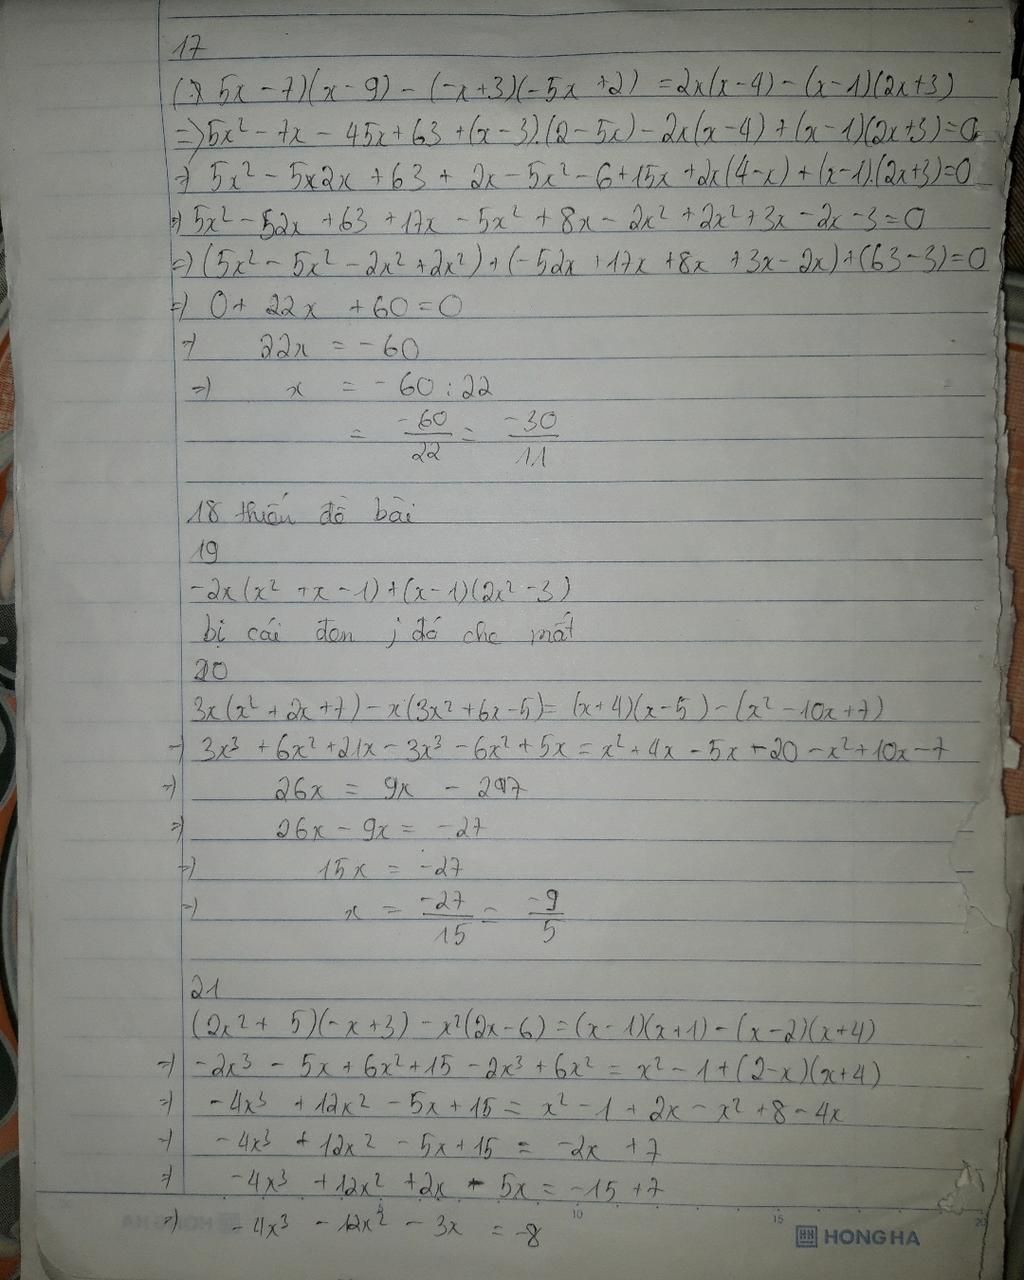 17
(5x - 7)(x - 9) - (-x + 3)(-5x + 2) = 2x(x - 4) - (x - 1)(2x + 3)
=> 5x² - 7x - 45x + 63 + (x - 3).(2 - 5x) - 2x(x - 4) + (x - 1)(2x + 3) = 0
=> 5x² - 5x2x + 63 + 2x - 5x² - 6 + 15x + 2x(4 - x) + (x - 1).(2x + 3) = 0
=> 5x² - 52x + 63 + 17x - 5x² + 8x - 2x² + 2x² + 3x - 2x - 3 = 0
=> (5x² - 5x² - 2x² + 2x²) + (-52x + 17x + 8x + 3x - 2x) + (63 - 3) = 0
=> 0 + 22x + 60 = 0
=> 22x = -60
=> x = -60 : 22
= -60/22 = -30/11
18 thiếu đề bài
19
-2x(x² + x - 1) + (x - 1)(2x² - 3)
bị cái đen j đó che mất
20
3x(x² + 2x + 7) - x(3x² + 6x - 5) = (x + 4)(x - 5) - (x² - 10x + 7)
=> 3x³ + 6x² + 21x - 3x³ - 6x² + 5x = x² + 4x - 5x - 20 - x² + 10x - 7
=> 26x = 9x - 27
=> 26x - 9x = -27
=> 15x = -27
=> x = -27/15 = -9/5
21
(2x² + 5)(-x + 3) - x²(2x - 6) = (x - 1)(x + 1) - (x - 2)(x + 4)
=> -2x³ - 5x + 6x² + 15 - 2x³ + 6x² = x² - 1 + (2 - x)(x + 4)
=> -4x³ + 12x² - 5x + 15 = x² - 1 + 2x - x² + 8 - 4x
=> -4x³ + 12x² - 5x + 15 = -2x + 7
=> -4x³ + 12x² + 2x - 5x = -15 + 7
=> -4x³ - 12x² - 3x = -8
10 15 20
HONG HA